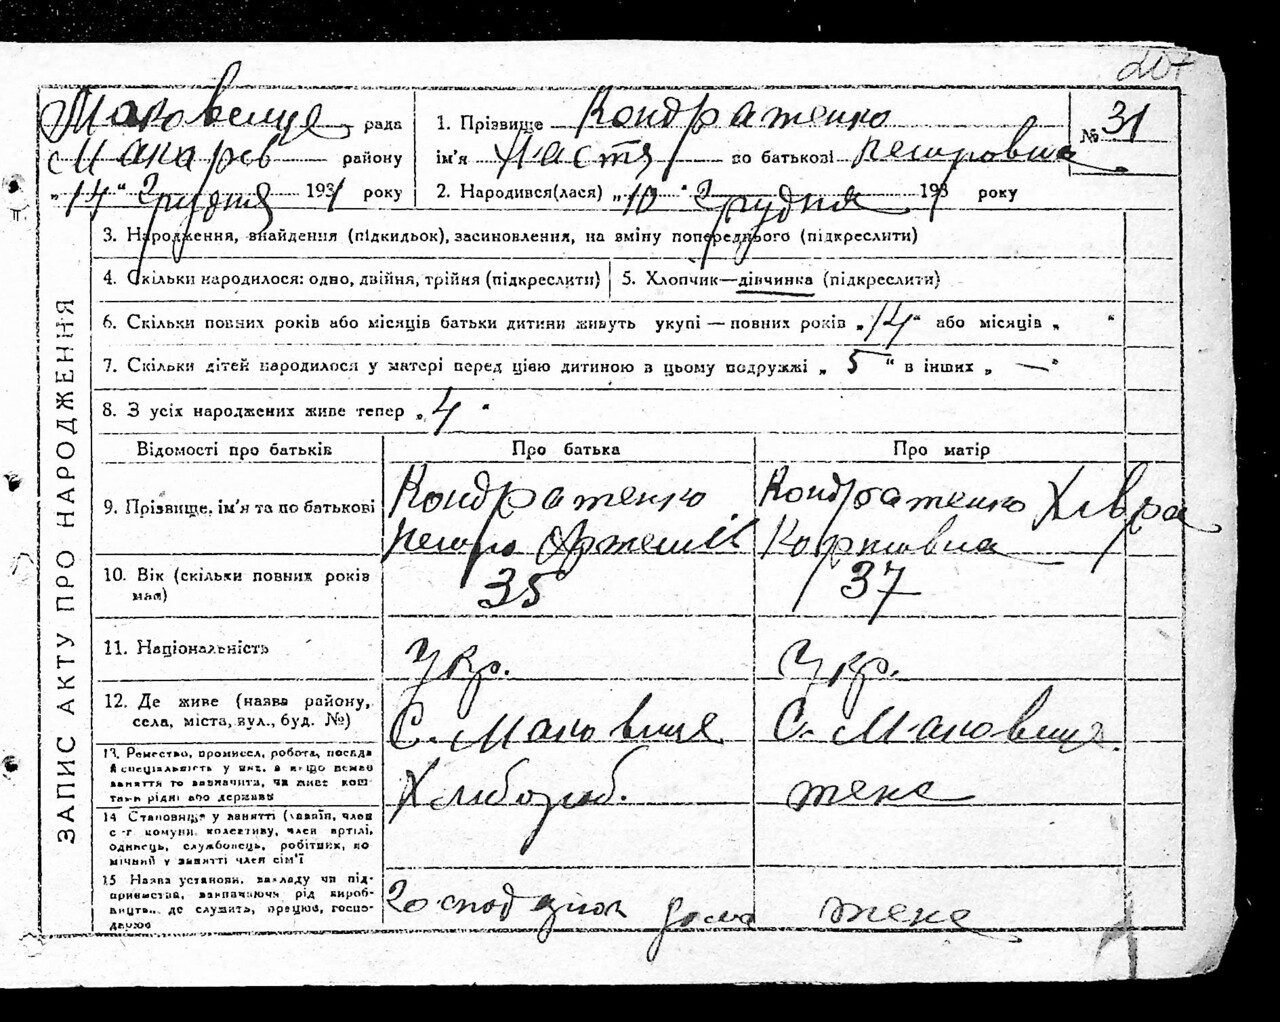 207
Маковище рада
Макарів району
„14" Грудня 1931 року
1. Прізвище Кондратенко
ім'я Настя по батькові Петровна
№ 31
2. Народився(лася) „10" Грудня 1931 року
3. Народження, знайдення (підкидьок), засиновлення, на зміну попереднього (підкреслити)
4. Скільки народилося: одно, двійня, трійня (підкреслити)
5. Хлопчик—дівчинка (підкреслити)
6. Скільки повних років або місяців батьки дитини живуть укупі — повних років „14" або місяців „ "
7. Скільки дітей народилося у матері перед цією дитиною в цьому подружжі „5" в інших „—"
8. З усіх народжених живе тепер „4"
ЗАПИС АКТУ ПРО НАРОДЖЕННЯ
Відомості про батьків
Про батька
Про матір
9. Прізвище, ім'я та по батькові
Кондратенко
Петро
Кондратенко Хівря
Карповна
10. Вік (скільки повних років
має)
35
37
11. Національність
Укр.
Укр.
12. Де живе (назва району,
села, міста, вул., буд. №)
С. Маковище
С. Маковище.
13. Ремество, промисел, робота, посада
й спеціальність у них, а якщо немає
заняття то зазначити, чи живе кош-
том рідні або держави
Хлібороб.
жене
14 Становище у занятті (хазяїн, член
с-г комуни, колективу, член артілі,
одинець, службовець, робітник, по
мічний у занятті член сім'ї
15 Назва установи, закладу чи під-
приємства, зазначаючи рід вироб-
ництв., де служить, працює, госпо-
дарює
дома
жене